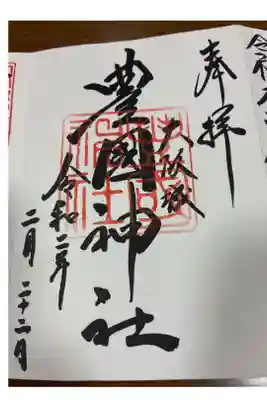 奉拝
大阪城
豊國神社
令和二年
二月二十二日